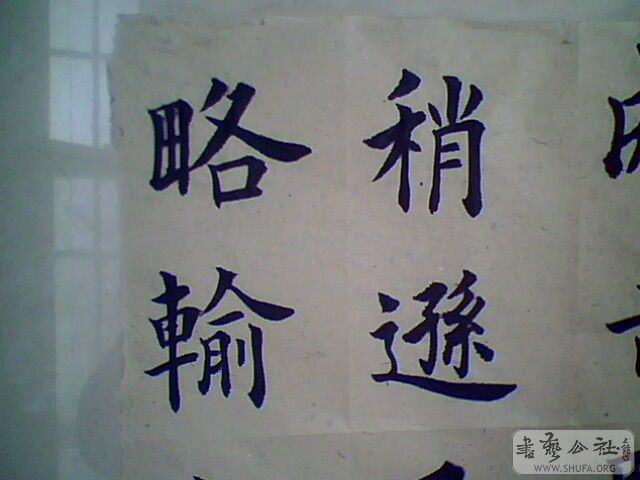 略輸
稍遜
書藝公社
WWW.SHUFA.ORG